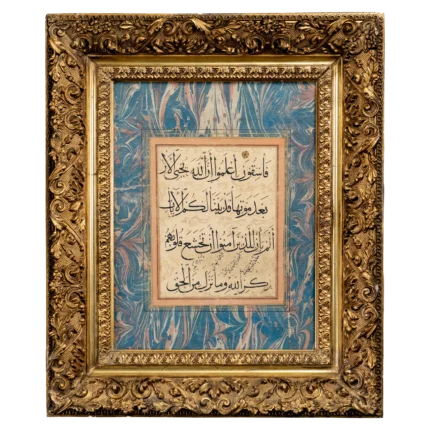 فاسقون اعلموا أن الله يحيى الأر
بعد موتها قد بينا لكم الآيات
ألم يأن للذين آمنوا أن تخشع قلوبهم
لذكر الله وما نزل من الحق